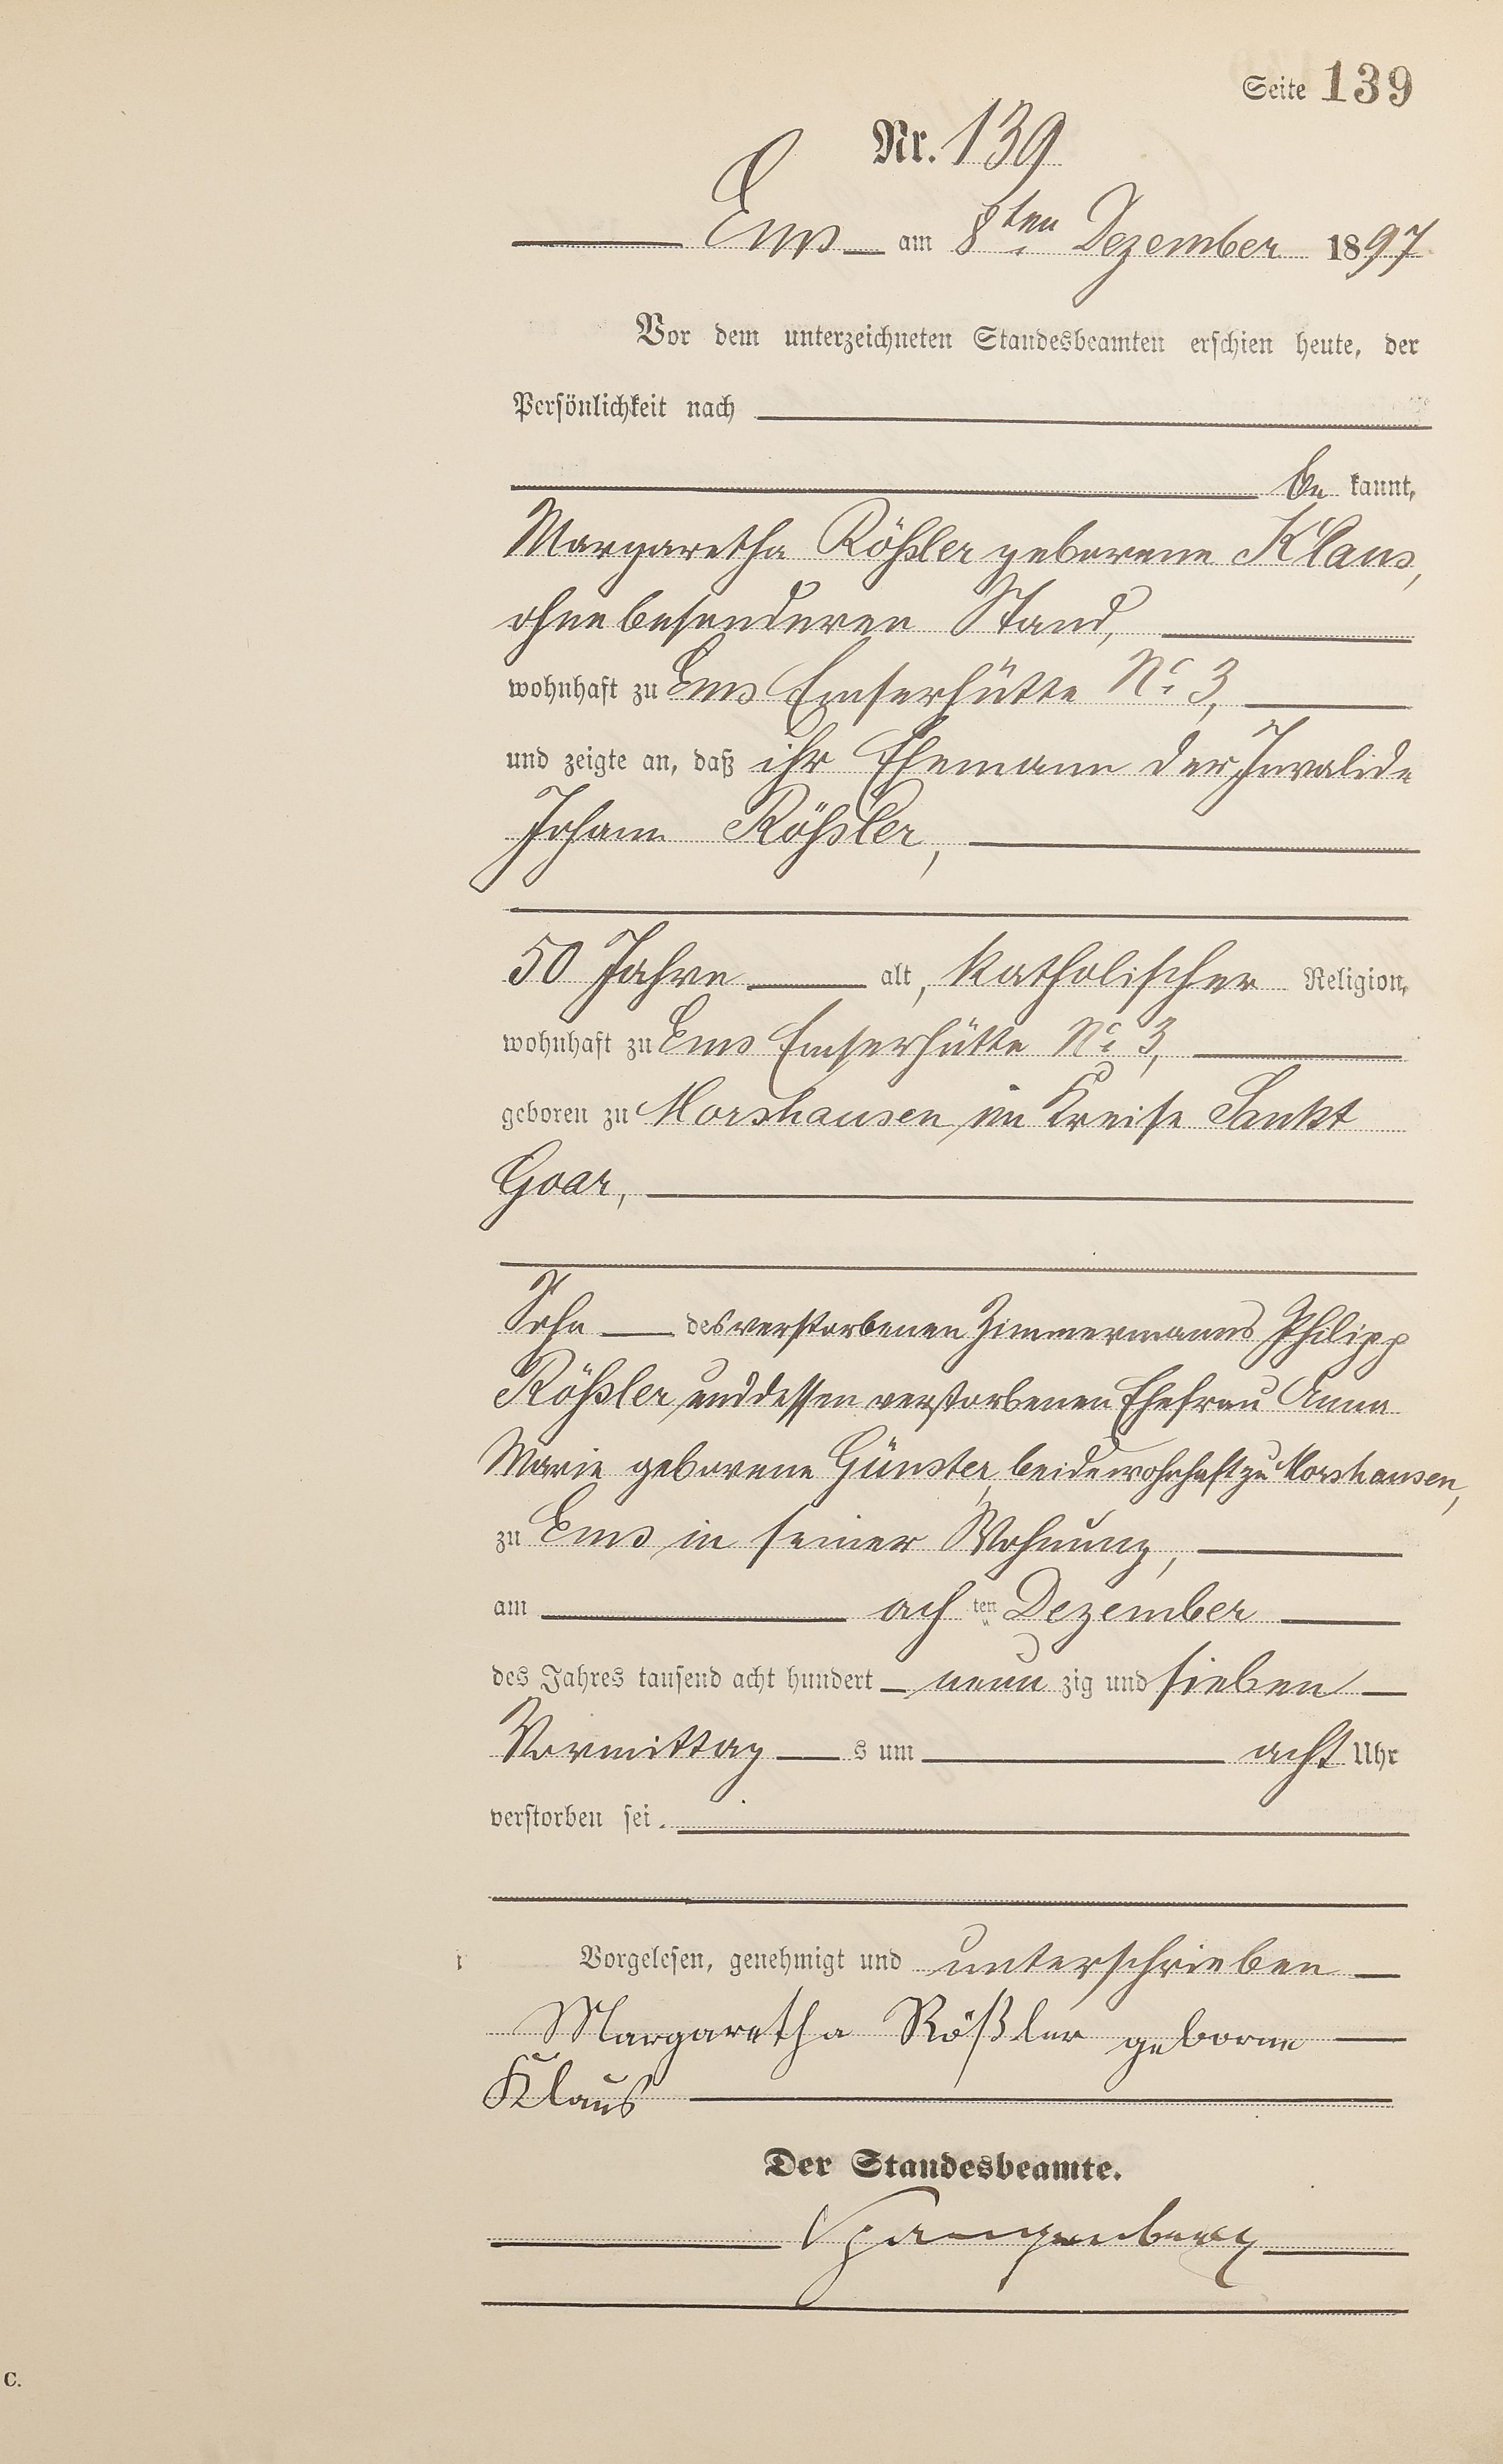 Seite 139
Nr. 139
Ems am 8ten Dezember 1897
Vor dem unterzeichneten Standesbeamten erschien heute, der
Persönlichkeit nach
be kannt,
Margaretha Rößler geborene Klaus,
ohne besonderen Stand,
wohnhaft zu Ems Emserhütte No 3,
und zeigte an, daß ihr Ehemann der Invalide
Johann Rößler,
50 Jahre alt, katholischer Religion,
wohnhaft zu Ems Emserhütte No 3,
geboren zu Morshausen im Kreise Sankt
Goar,
Sohn des verstorbenen Zimmermanns Philipp
Rößler und dessen verstorbenen Ehefrau Anna
Marie geborene Günster, beide wohnhaft zu Morshausen,
zu Ems in seiner Wohnung,
am ach ten Dezember
des Jahres tausend acht hundert neun zig und sieben
Vormittag s um acht Uhr
verstorben sei.
Vorgelesen, genehmigt und unterschrieben
Margaretha Rößler geborne
Klaus
Der Standesbeamte.
Spangenberg
C.